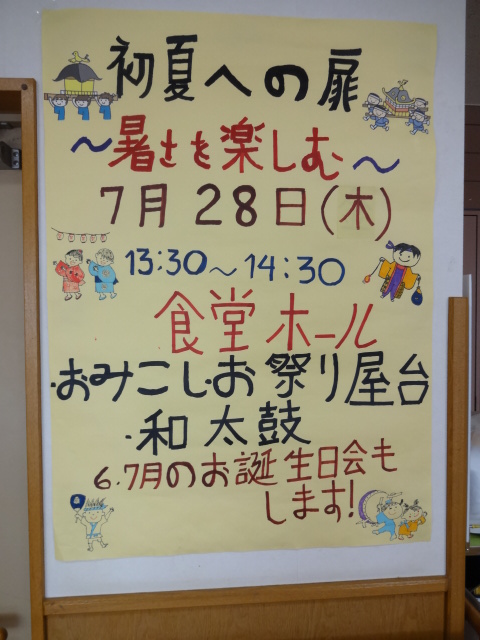 初夏への扉
～暑さを楽しむ～
7月28日(木)
13:30～14:30
食堂ホール
・おみこし・お祭り屋台
・和太鼓
6.7月のお誕生日会も
します!